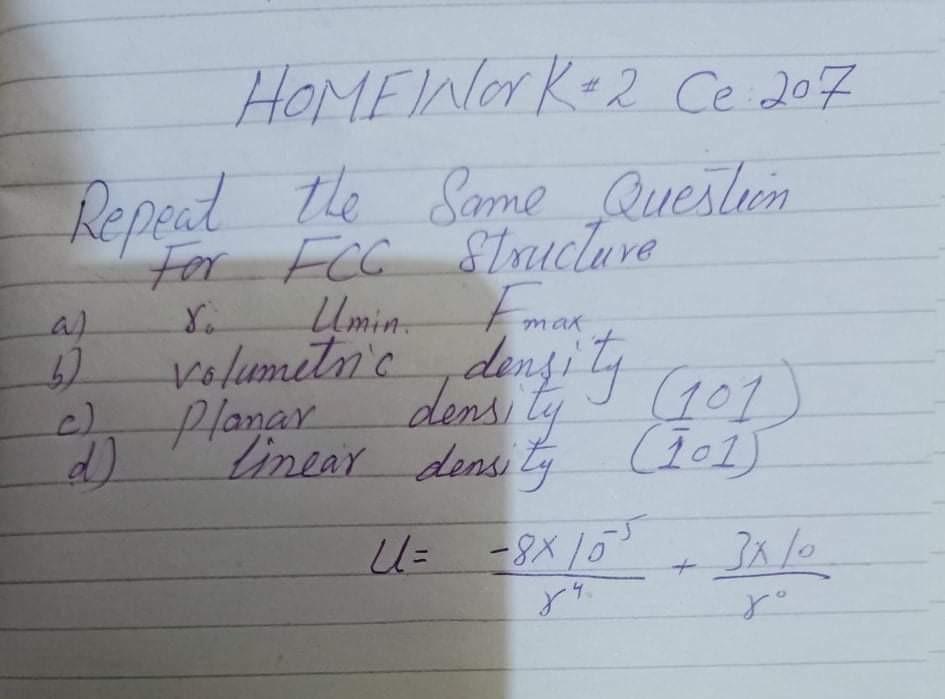 HOMEWork #2 Ce: 207
Repeat the Same Question
For FCC Structure
a) r₀ Umin. Fmax
b) volumetric density
c) Planar density (101)
d) linear density (1̄01)
U= -8×10⁻⁵/r⁴ + 3×10/r⁰